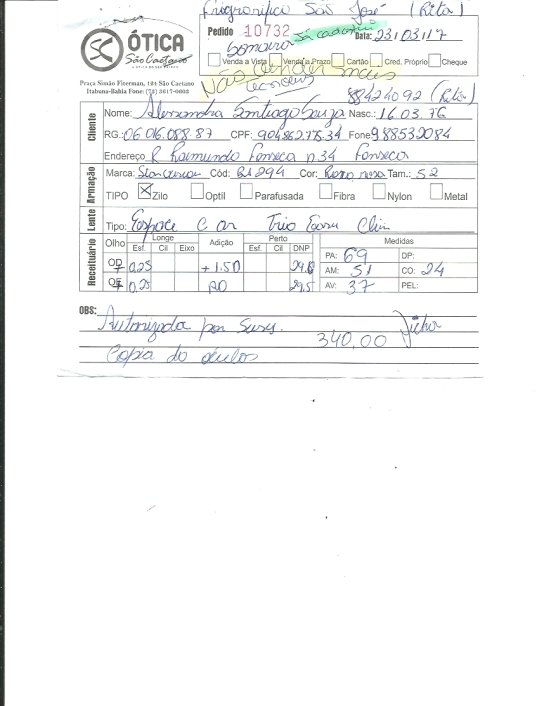 Frigorifico São José (Rita)
ÓTICA
São Caetano
Pedido 10732 Já cadastro Data: 23/03/17
Venda a Vista Venda a Prazo Cartão Cred. Próprio Cheque
Não vender mais
Praça Simão Fiterman, 194 São Caetano
Itabuna-Bahia Fone: (73) 3617-0602
88424092 (Rita)
Cliente
Nome: Alessandra Santiago Souza Nasc.: 16.03.76
RG.: 06016.088.87 CPF: 904862775.34 Fone 988532084
Endereço R Raimundo Fonseca n.34 Fonseca
Armação
Marca: Cód: BJ294 Cor: Tam.: 52
TIPO X Zilo Optil Parafusada Fibra Nylon Metal
Lente
Tipo: Espace C ar Trio Easy Clin
Receituário
Olho Longe Adição Perto Medidas
Esf. Cil Eixo Esf. Cil DNP
OD + 0,25 + 1.50 29. PA: 69 DP:
AM: 51 CO: 24
OE + 0,25 AD 29,5 AV: 37 PEL:
OBS:
Autorizada por Susy.
340,00
Copia do óculos